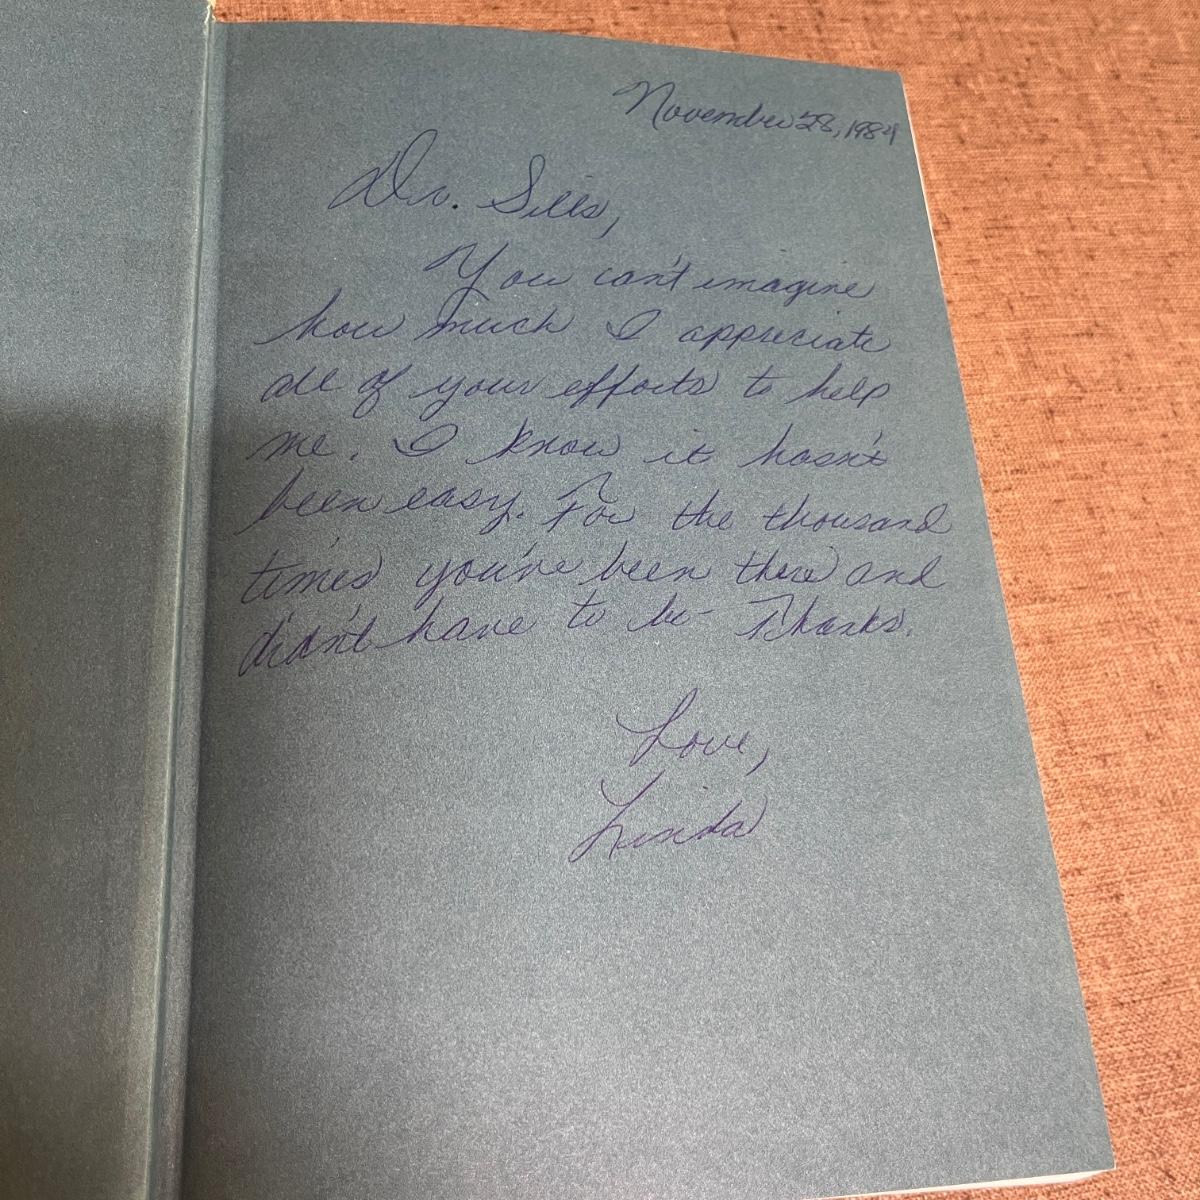 November 28, 1984
Dr. Sills,
You can't imagine
how much I appreciate
all of your efforts to help
me. I know it hasn't
been easy. For the thousand
times you've been there and
didn't have to be - Thanks.
Love,
Linda